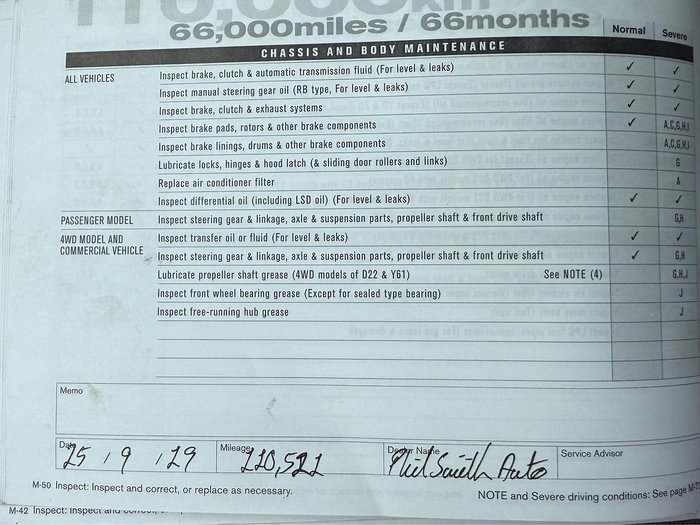 110,000km
66,000miles / 66months
Normal Severe
CHASSIS AND BODY MAINTENANCE
ALL VEHICLES Inspect brake, clutch & automatic transmission fluid (For level & leaks) ✓ ✓
Inspect manual steering gear oil (RB type, For level & leaks) ✓ ✓
Inspect brake, clutch & exhaust systems ✓ ✓
Inspect brake pads, rotors & other brake components ✓ A,C,G,H,I
Inspect brake linings, drums & other brake components A,C,G,H,I
Lubricate locks, hinges & hood latch (& sliding door rollers and links) G
Replace air conditioner filter A
Inspect differential oil (including LSD oil) (For level & leaks) ✓ ✓
PASSENGER MODEL Inspect steering gear & linkage, axle & suspension parts, propeller shaft & front drive shaft G,H
4WD MODEL AND Inspect transfer oil or fluid (For level & leaks) ✓ ✓
COMMERCIAL VEHICLE Inspect steering gear & linkage, axle & suspension parts, propeller shaft & front drive shaft ✓ G,H
Lubricate propeller shaft grease (4WD models of D22 & Y61) See NOTE (4) G,H,J
Inspect front wheel bearing grease (Except for sealed type bearing) J
Inspect free-running hub grease J
Memo
Date 25 / 9 / 29 Mileage 210,521 Dealer Name Phil Smith Auto Service Advisor
M-50 Inspect: Inspect and correct, or replace as necessary. NOTE and Severe driving conditions: See page M-7
M-42 Inspect: Inspect and correct,